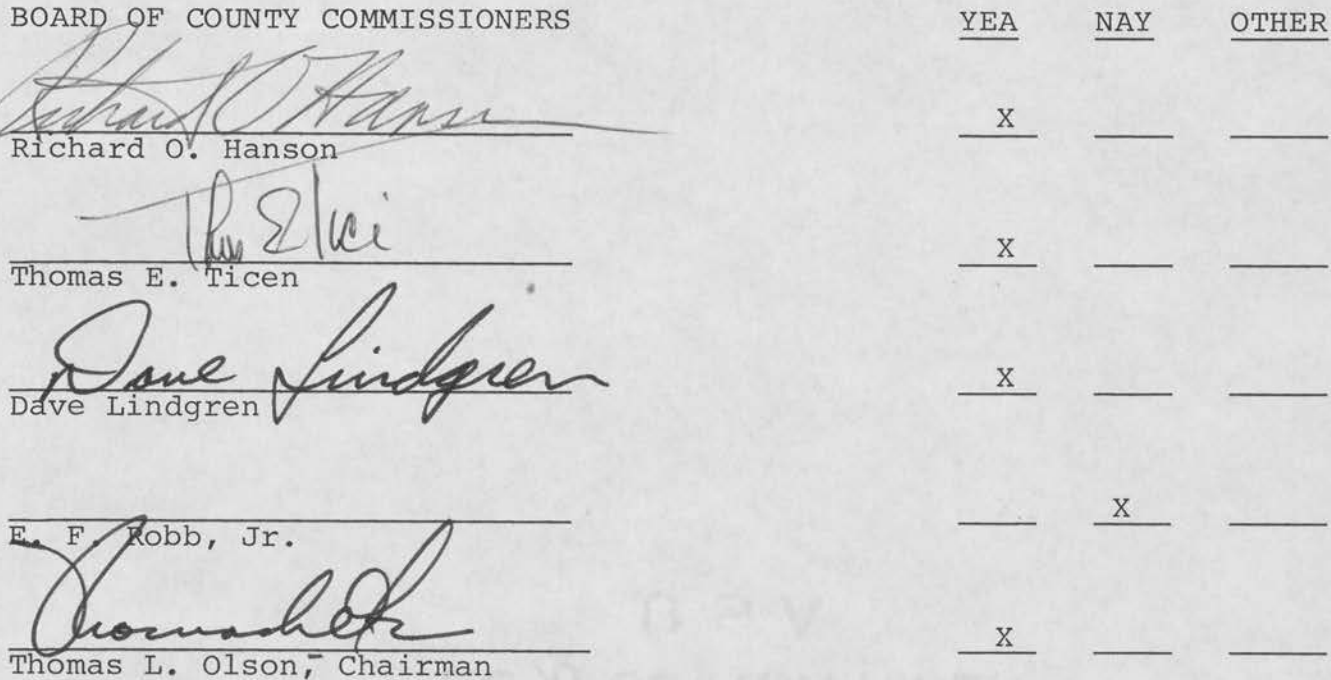 BOARD OF COUNTY COMMISSIONERS YEA NAY OTHER
Richard O Hanson
X
Richard O. Hanson
X
Thomas E. Ticen
Dave Lindgren
X
Dave Lindgren
X
E. F. Robb, Jr.
X
Thomas L. Olson, Chairman